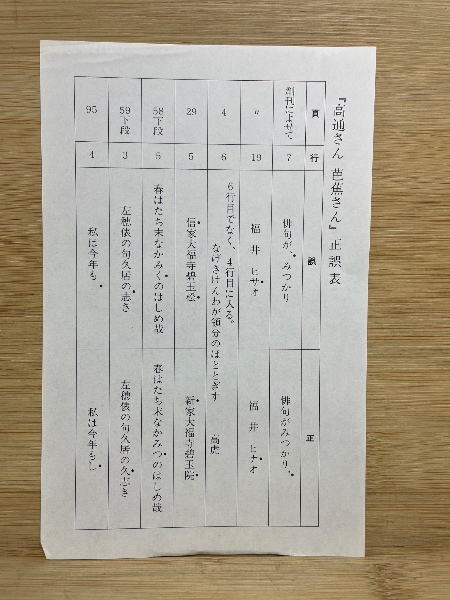 『高通さん 芭蕉さん』正誤表
頁 行 誤 正
創刊によせて 7 俳句が、みつかり 俳句がみつかり、
〃 19 福井 ヒサオ 福井 ヒナオ
4 6 6行目でなく、4行目に入る。
なげきけんわが領分のほととぎす 高虎
29 5 信家大福寺碧玉松 新家大福寺碧玉院
58下段 5 春はたち末なかみくのはじめ哉 春はたち末なかみつのはじめ哉
59下段 3 左穂俵の句久居の志き 左穂俵の句久居の久志き
95 4 私は今年も 私は今年もし